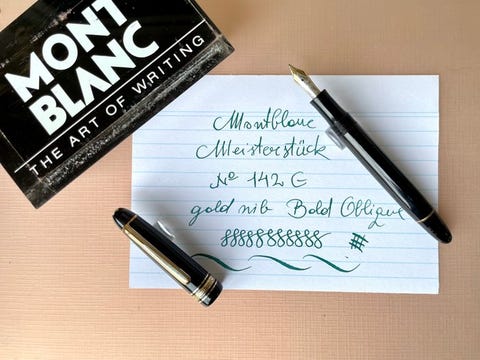 MONT
BLANC
THE ART OF WRITING
Montblanc
Meisterstück
Nº 142 G
gold nib Bold Oblique